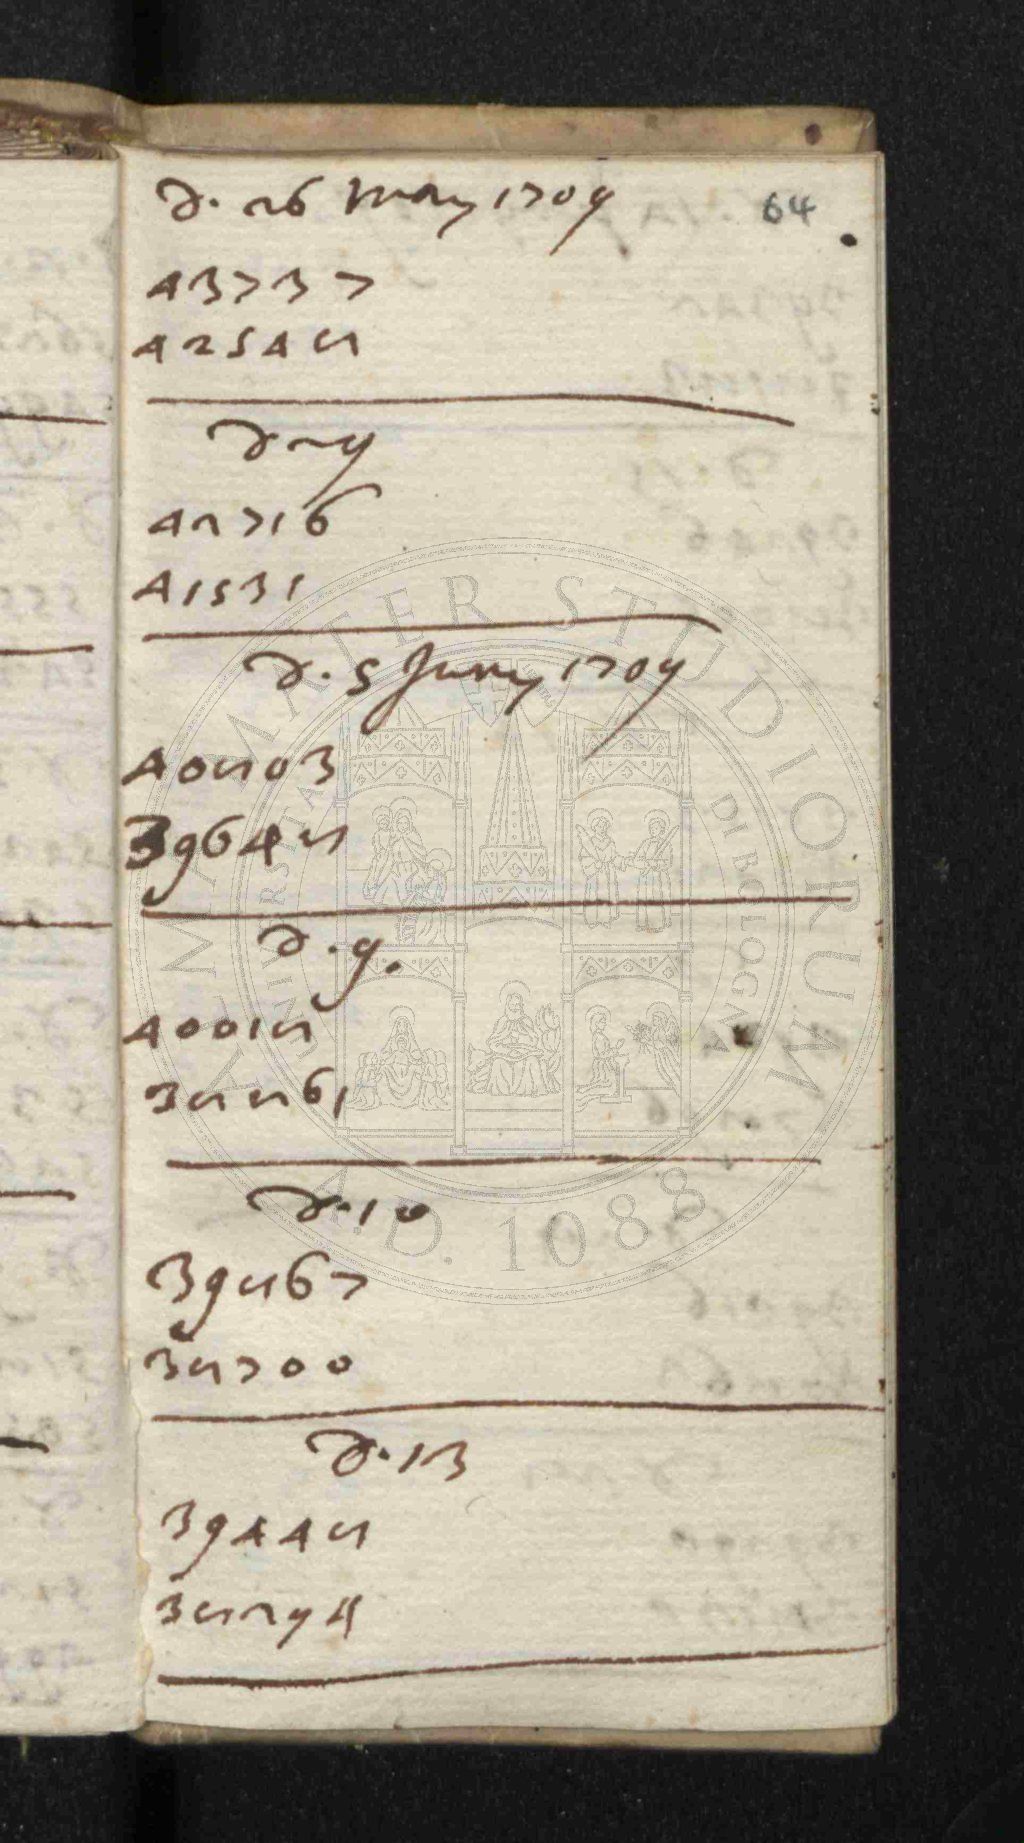 D. 26 May 1709
64
43737
42548
D 29
42716
41531
D. 5 Juny 1709
40803
39648
D. 9.
40018
38861
D. 10
39867
38700
D. 13
39448
38294
ALMA MATER STUDIORUM
UNIVERSITÀ DI BOLOGNA
A.D. 1088